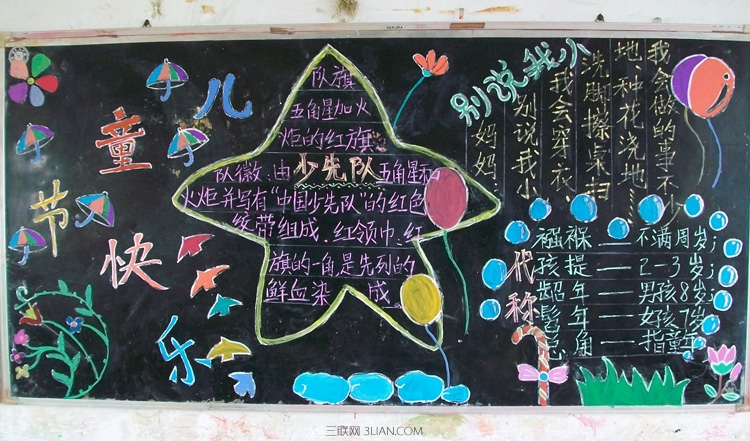 儿
童
节
快
乐
队旗
五角星加火
炬的红旗
队徽:由少先队五角星和
火炬并写有“中国少先队”的红色
绶带组成、红领巾:红
旗的一角是先烈的
鲜血染 成。
别说我小
妈妈:
别说我小
我会穿衣、
洗脚擦桌扫
地、种花浇地……
我会做的事不少
代称
襁褓——不满周岁;
孩提——2-3岁;
龆年——男孩8岁;
髫年——女孩7岁
总角——指童年
三联网 3LIAN.COM